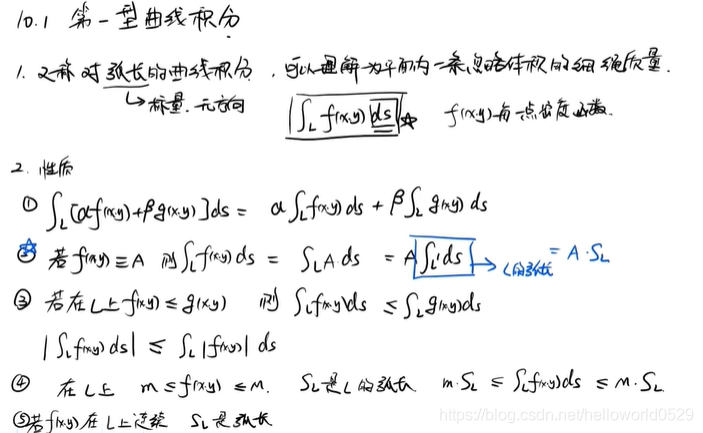 10.1 第一型曲线积分
1. 又称对弧长的曲线积分,可以理解为平面内一条忽略体积的细绳质量.
↳标量.无方向 ∫_L f(x,y) ds ☆ f(x,y)每一点密度函数.
2. 性质
① ∫_L [αf(x,y)+βg(x,y)]ds = α∫_L f(x,y)ds + β∫_L g(x,y)ds
② 若f(x,y)≡A 则∫_L f(x,y)ds = ∫_L A·ds = A∫_L 1·ds → L的弧长 = A·S_L
③ 若在L上f(x,y)≤g(x,y) 则 ∫_L f(x,y)ds ≤ ∫_L g(x,y)ds
|∫_L f(x,y)ds| ≤ ∫_L |f(x,y)| ds
④ 在L上 m≤f(x,y)≤M. S_L是L的弧长 m·S_L ≤ ∫_L f(x,y)ds ≤ M·S_L
⑤若f(x,y)在L上连续 S_L是弧长
https://blog.csdn.net/helloworld0529